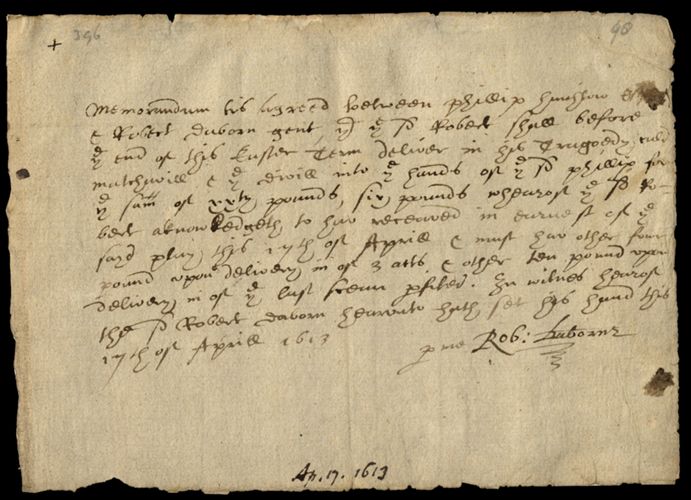 + 396
98
Memorandum tis agreed between phillip hinchlow Esqr
& Robert daborn gent, yt ye sd Robert shall before
ye end of this Easter Term deliver in his Tragoedy cald
matchavill & ye divill into ye hands of ye sd phillip for
ye sum of xxty pounds, six pounds whearof ye sd Ro-
bert aknowledgeth to hav receaved in earnest of ye
sayd play this 17th of Aprill & must hav other four
pound upon delivery in of 3 acts & other ten pound upon
delivery in of ye last scean pfited. In witnes hearof
the sd Robert daborn heerunto hath set his hand this
17th of Aprill 1613
p me Rob: Daborne
Ap. 17. 1613